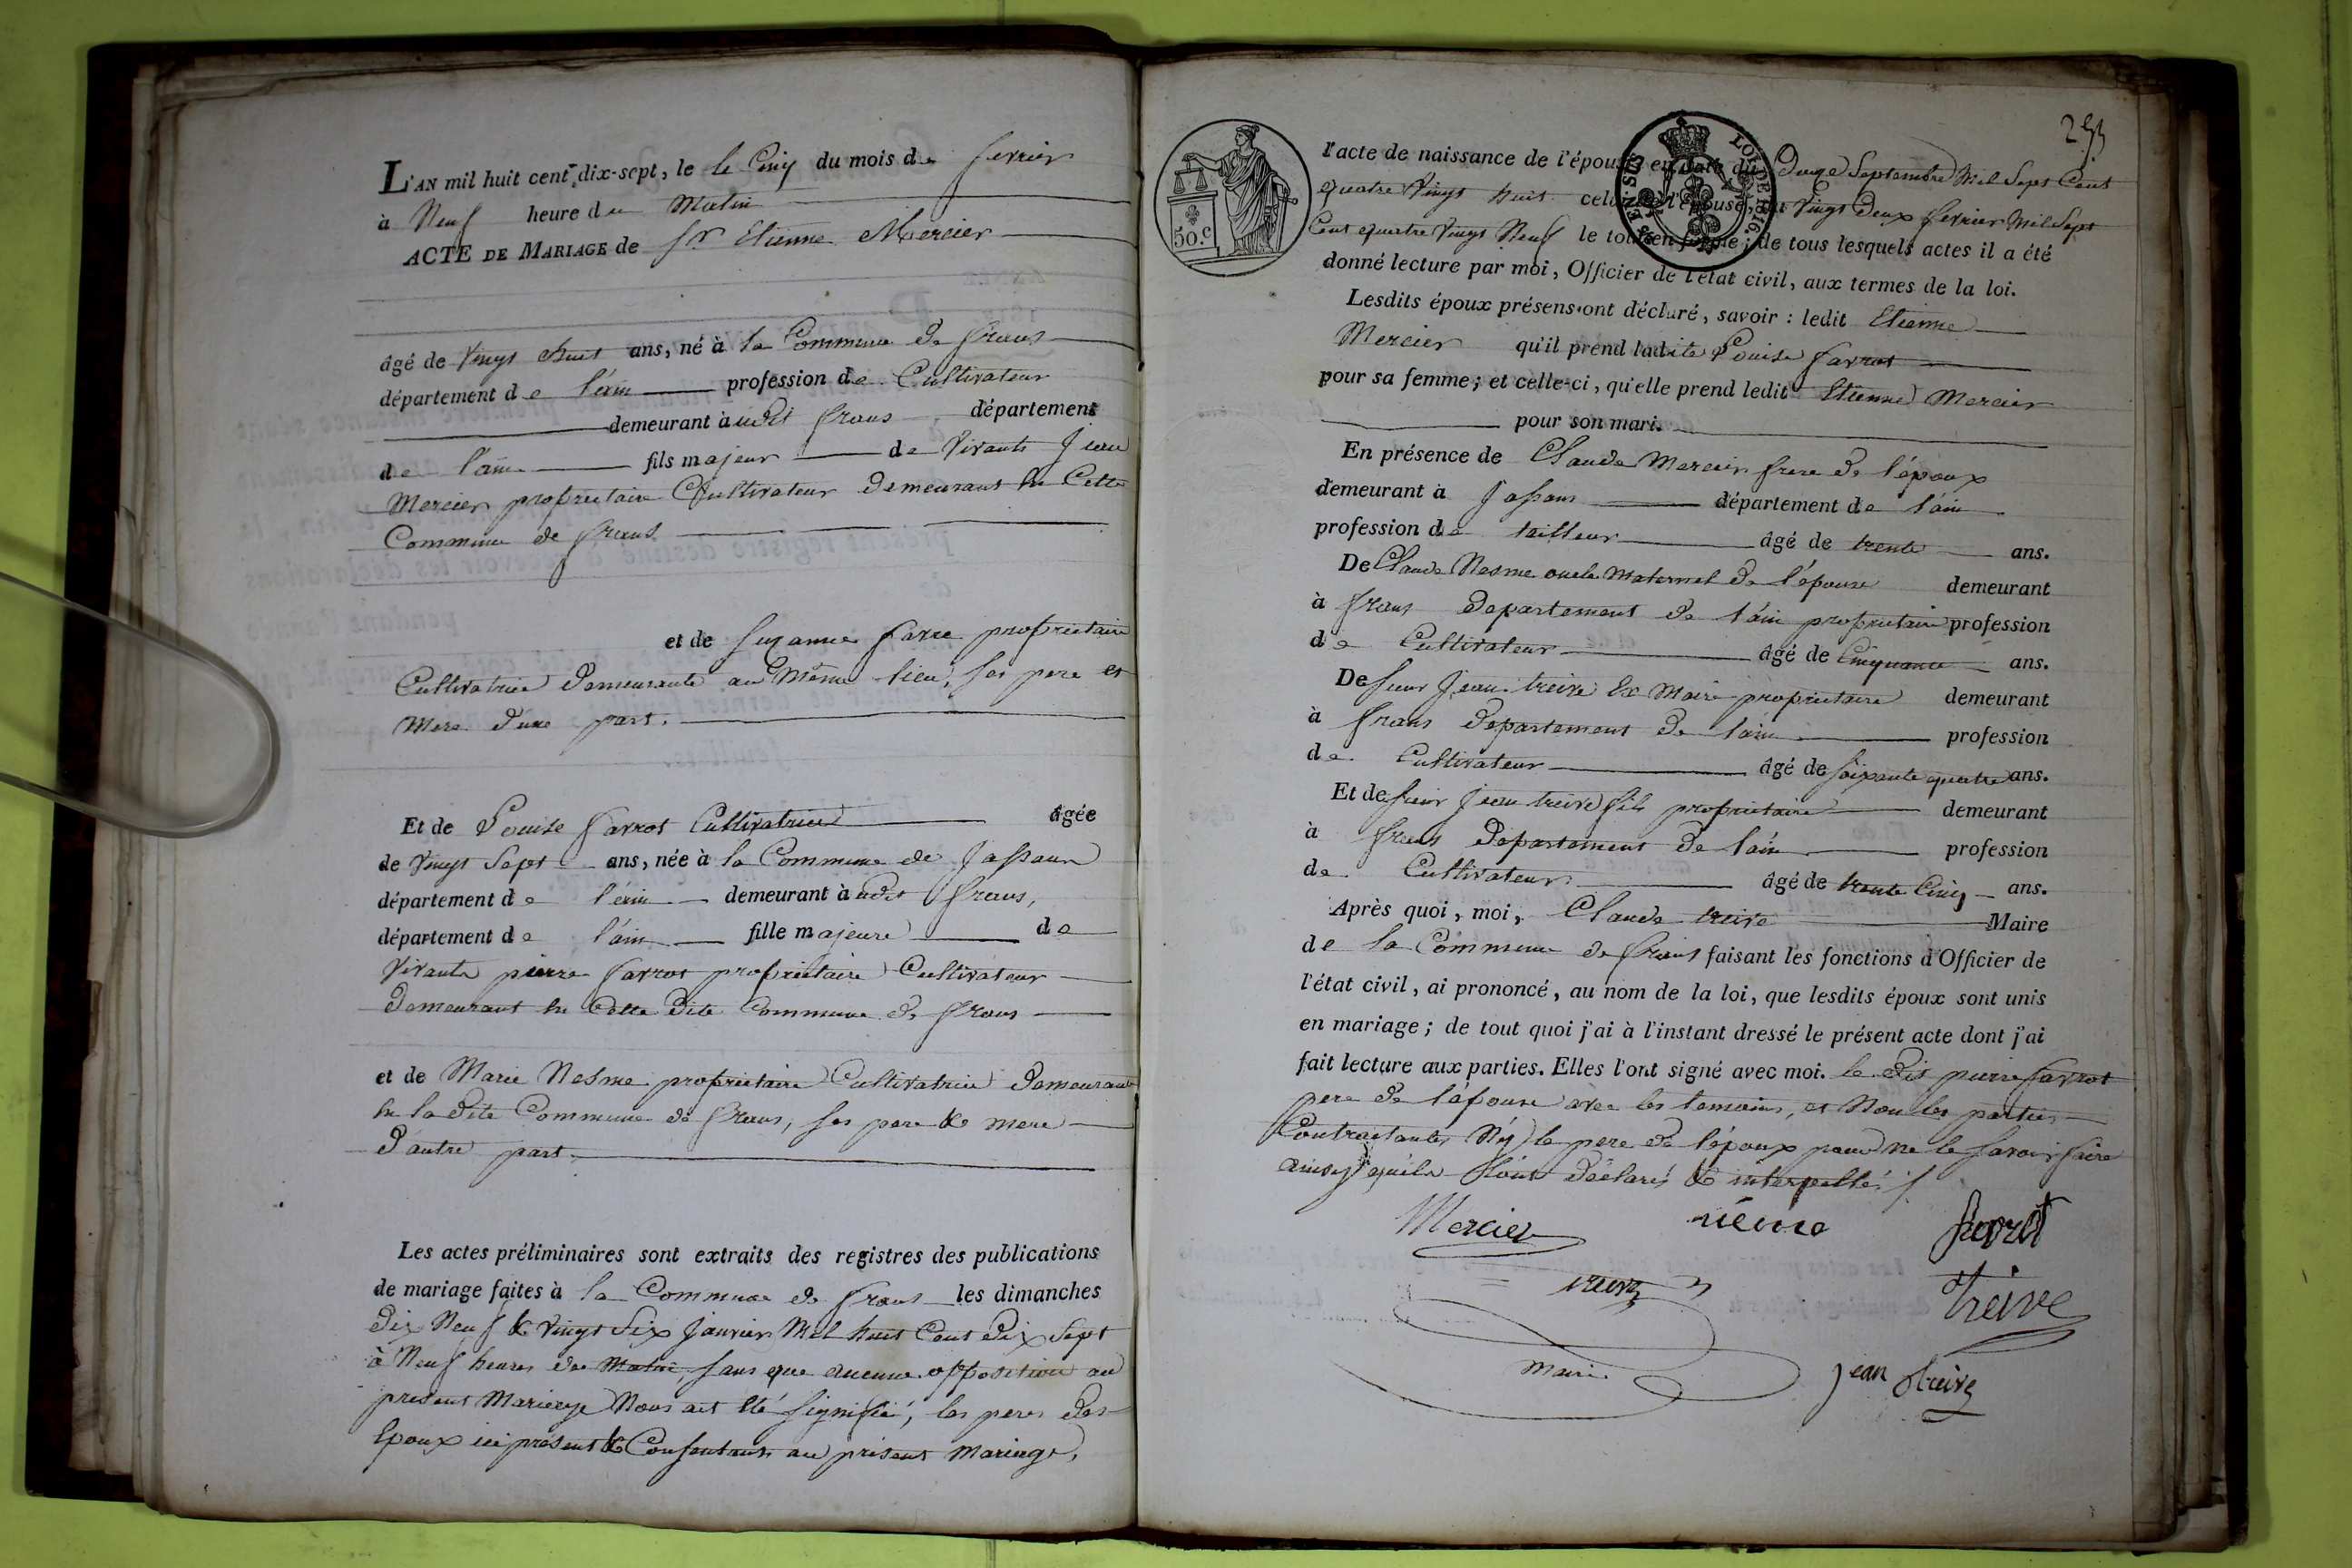 L'AN mil huit cent dix-sept, le le Cinq du mois de fevrier
à Neuf heure du Matin
ACTE DE MARIAGE de Sr Etienne Mercier
âgé de Vingt huit ans, né à la Commune de frans
département de l'ain profession de Cultivateur
demeurant à udit frans département
de l'ain fils majeur de Vivants Jean
Mercier proprietaire Cultivateur demeurant en Cette
Commune de frans
et de Suzanne favre proprietaire
Cultivatrice demeurante au Même lieu, ses pere et
Mere d'une part.
Et de Louise farrot Cultivatrice âgée
de Vingt Sept ans, née à la Commune de Jassans
département de l'ain demeurant à udit frans,
département de l'ain fille majeure de
Vivants pierre farrot proprietaire Cultivateur
demeurant en Cette dite Commune de frans
et de Marie Nesme proprietaire Cultivatrice demeurant
en la dite Commune de frans, ses pere & mere
d'autre part.
Les actes préliminaires sont extraits des registres des publications
de mariage faites à la Commune de frans les dimanches
dix Neuf & Vingt Six janvier Mil huit Cent dix Sept
à Neuf heures du Matin, sans que aucune opposition au
present Mariage Nous ait été signifié, les peres des
Epoux ici présent & Consentant au présent Mariage,
253
50.c
EN SUS
LOI DE 1816.
l'acte de naissance de l'époux en date du Douze Septembre Mil Sept Cent
quatre Vingt huit celui de l'épouse, du Vingt Deux fevrier Mil Sept
Cent quatre Vingt Neuf le tout en forme; de tous lesquels actes il a été
donné lecture par moi, Officier de l'état civil, aux termes de la loi.
Lesdits époux présens ont déclaré, savoir : ledit Etienne
Mercier qu'il prend ladite Louise farrot
pour sa femme; et celle-ci, qu'elle prend ledit Etienne Mercier
pour son mari.
En présence de Claude Mercier frere de l'époux
demeurant à Jassans département de l'ain
profession de tailleur âgé de trente ans.
De Claude Nesme oncle Maternel de l'épouse demeurant
à frans departement de l'ain proprietaire profession
de Cultivateur âgé de Cinquante ans.
De sieur Jean treive Ex Maire proprietaire demeurant
à frans departement de l'ain profession
de Cultivateur âgé de soixante quatre ans.
Et de sieur Jean treive fils proprietaire demeurant
à frans département de l'ain profession
de Cultivateur âgé de trente Cinq ans.
Après quoi, moi, Claude treive Maire
de la Commune de frans faisant les fonctions d'Officier de
l'état civil, ai prononcé, au nom de la loi, que lesdits époux sont unis
en mariage; de tout quoi j'ai à l'instant dressé le présent acte dont j'ai
fait lecture aux parties. Elles l'ont signé avec moi. le dit pierre farrot
pere de l'épouse avec les temoins, et Non les parties
Contractantes Ny le pere de l'époux pour ne le savoir faire
ainsy qu'ils l'ont déclarés & interpellés
Mercier néme favrot
treive treive
Maire jean treive